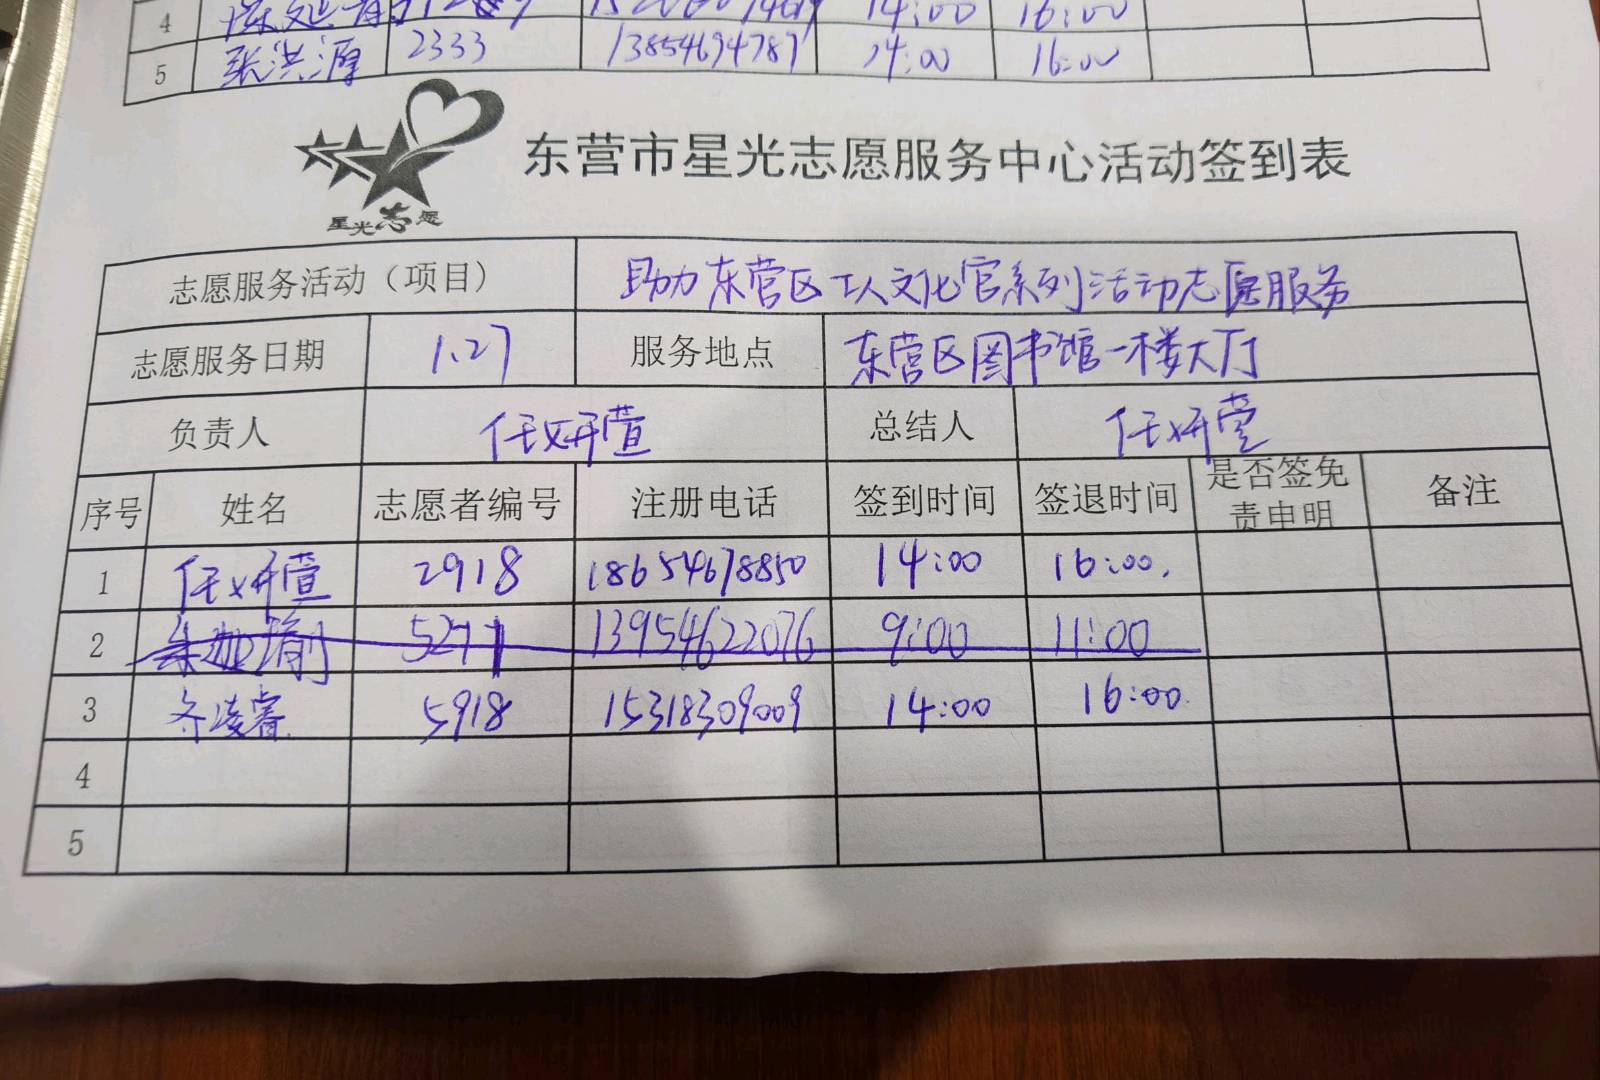 4 14:00 16:00
5 张洪源 2333 13854694787 14:00 16:00
星光志愿
东营市星光志愿服务中心活动签到表
志愿服务活动（项目） 助力东营区工人文化宫系列活动志愿服务
志愿服务日期 1.27 服务地点 东营区图书馆一楼大厅
负责人 任妍萱 总结人 任妍萱
序号 姓名 志愿者编号 注册电话 签到时间 签退时间 是否签免责申明 备注
1 任妍萱 2918 18654678850 14:00 16:00.
2 13954622076 9:00 11:00
3 齐凌睿 5918 15318309009 14:00 16:00
4
5